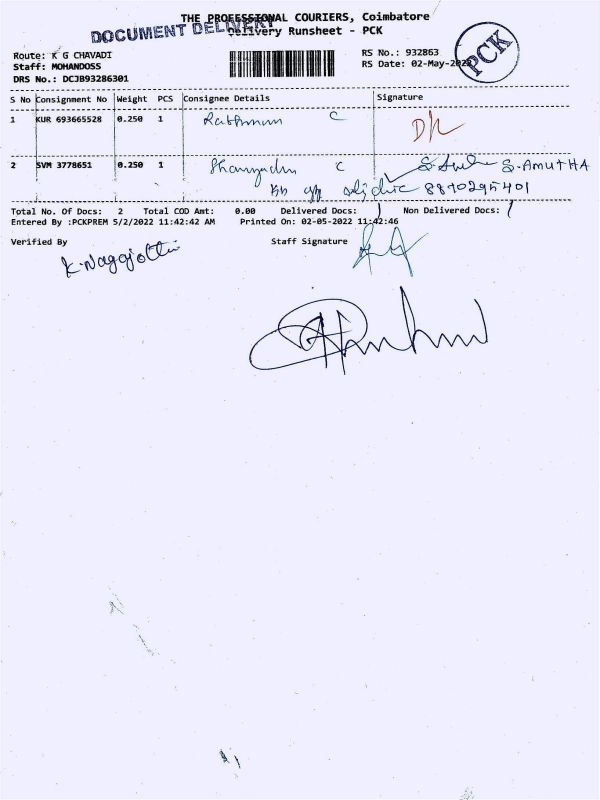 THE PROFESSIONAL COURIERS, Coimbatore
DOCUMENT DELIVERY
Delivery Runsheet - PCK
PCK
Route: K G CHAVADI
RS No.: 932863
Staff: MOHANDOSS
RS Date: 02-May-2022
DRS No.: DCJB93286301
S No Consignment No Weight PCS Consignee Details Signature
1 KUR 693665528 0.250 1 C
2 SVM 3778651 0.250 1 C S.AMUTHA
8870295401
Total No. Of Docs: 2 Total COD Amt: 0.00 Delivered Docs: 1 Non Delivered Docs: 1
Entered By :PCKPREM 5/2/2022 11:42:42 AM Printed On: 02-05-2022 11:42:46
Verified By Staff Signature